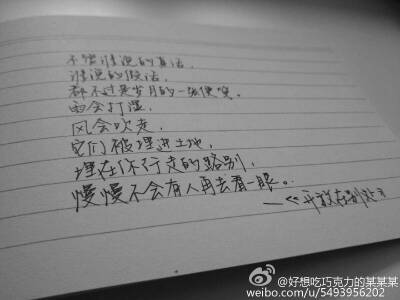 不管谁说的真话,
谁说的假话,
都不过是岁月的一张便笺。
雨会打湿,
风会吹走,
它们被埋进土地,
埋在你行走的路别,
慢慢不会有人再去看一眼。
——《开放在别处》
@好想吃巧克力的某某某
weibo.com/u/5493956202